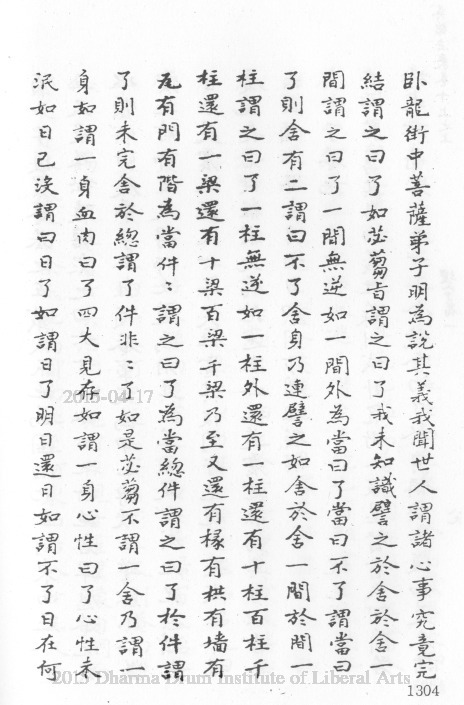 臥龍街中菩薩弟子明為說其義我聞世人謂諸心事究竟完
結謂之曰了如苾蒭旨謂之曰了我未知識譬之於舍於舍一
間謂之曰了一間無逆如一間外為當曰了當曰不了謂當曰
了則舍有二謂曰不了舍身乃連譬之如舍於舍一間於間一
柱謂之曰了一柱無逆如一柱外還有一柱還有十柱百柱千
柱還有一梁還有十梁百梁千梁乃至又還有椽有栱有墻有
瓦有門有階為當件〻謂之曰了為當總件謂之曰了於件謂
了則未完舍於總謂了件非〻了如是苾蒭不謂一舍乃謂一
身如謂一身血肉曰了四大見存如謂一身心性曰了心性未
泯如日已沒謂曰日了如謂日了明日還日如謂不了日在何
2015-04-17
2015 Dharma Drum Institute of Liberal Arts
1304